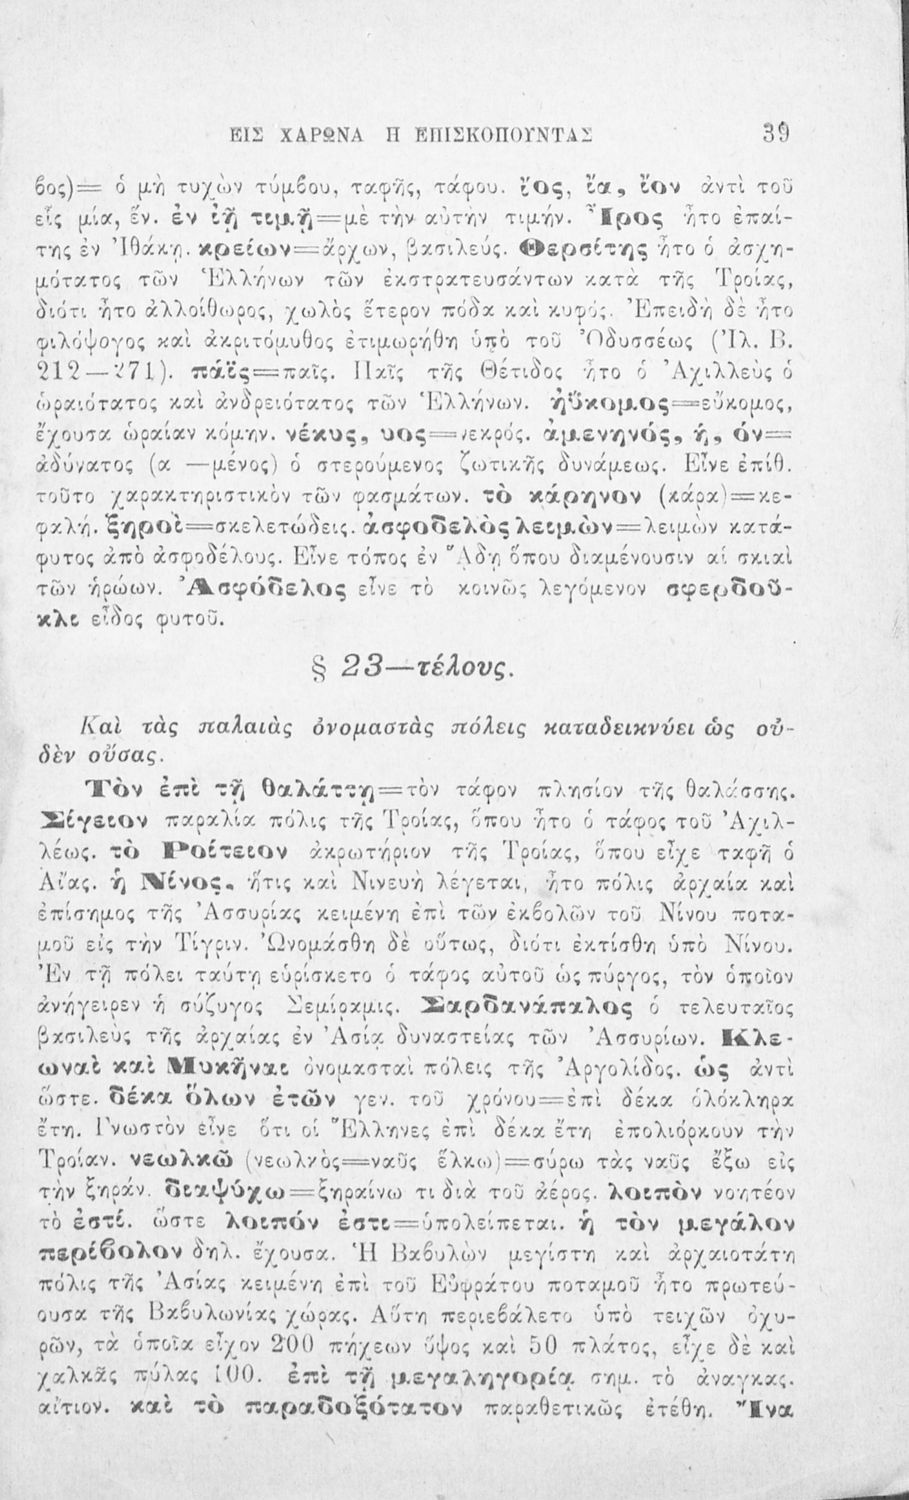 ΕΙΣ ΧΑΡΩΝΑ Η ΕΠΙΣΚΟΠΟΥΝΤΑΣ 39
βος)= ὁ μὴ τυχὼν τύμβου, ταφῆς, τάφου. ἴος, ἴα, ἴον ἀντὶ τοῦ
εἷς μία, ἕν. ἐν ἰῇ τιμῇ=μὲ τὴν αὐτὴν τιμήν. Ἶρος ἦτο ἐπαί-
της ἐν Ἰθάκῃ. κρείων=ἄρχων, βασιλεύς. Θερσίτης ἦτο ὁ ἀσχη-
μότατος τῶν Ἑλλήνων τῶν ἐκστρατευσάντων κατὰ τῆς Τροίας,
διότι ἦτο ἀλλοίθωρος, χωλὸς ἕτερον πόδα καὶ κυφός. Ἐπειδὴ δὲ ἦτο
φιλόψογος καὶ ἀκριτόμυθος ἐτιμωρήθη ὑπὸ τοῦ Ὀδυσσέως (Ἰλ. Β.
212—271). πάϊς=παῖς. Παῖς τῆς Θέτιδος ἦτο ὁ Ἀχιλλεὺς ὁ
ὡραιότατος καὶ ἀνδρειότατος τῶν Ἑλλήνων. ἠΰκομος=εὔκομος,
ἔχουσα ὡραίαν κόμην. νέκυς, υος=νεκρός. ἀμενηνός, ή, όν=
ἀδύνατος (α —μένος) ὁ στερούμενος ζωτικῆς δυνάμεως. Εἶνε ἐπίθ.
τοῦτο χαρακτηριστικὸν τῶν φασμάτων. τὸ κάρηνον (κάρα)=κε-
φαλή. ξηροὶ=σκελετώδεις. ἀσφοδελὸς λειμὼν=λειμὼν κατά-
φυτος ἀπὸ ἀσφοδέλους. Εἶνε τόπος ἐν Ἅδῃ ὅπου διαμένουσιν αἱ σκιαὶ
τῶν ἡρώων. Ἀσφόδελος εἶνε τὸ κοινῶς λεγόμενον σφερδοῦ-
κλι εἶδος φυτοῦ.
§ 23—τέλους.
Καὶ τὰς παλαιὰς ὀνομαστὰς πόλεις καταδεικνύει ὡς οὐ-
δὲν οὔσας.
Τὸν ἐπὶ τῇ θαλάττῃ=τὸν τάφον πλησίον τῆς θαλάσσης.
Σίγειον παραλία πόλις τῆς Τροίας, ὅπου ἦτο ὁ τάφος τοῦ Ἀχιλ-
λέως. τὸ Ῥοίτειον ἀκρωτήριον τῆς Τροίας, ὅπου εἶχε ταφῆ ὁ
Αἴας. ἡ Νίνος, ἥτις καὶ Νινευὴ λέγεται, ἦτο πόλις ἀρχαία καὶ
ἐπίσημος τῆς Ἀσσυρίας κειμένη ἐπὶ τῶν ἐκβολῶν τοῦ Νίνου ποτα-
μοῦ εἰς τὴν Τίγριν. Ὠνομάσθη δὲ οὕτως, διότι ἐκτίσθη ὑπὸ Νίνου.
Ἐν τῇ πόλει ταύτῃ εὑρίσκετο ὁ τάφος αὐτοῦ ὡς πύργος, τὸν ὁποῖον
ἀνήγειρεν ἡ σύζυγος Σεμίραμις. Σαρδανάπαλος ὁ τελευταῖος
βασιλεὺς τῆς ἀρχαίας ἐν Ἀσίᾳ δυναστείας τῶν Ἀσσυρίων. Κλε-
ωναὶ καὶ Μυκῆναι ὀνομασταὶ πόλεις τῆς Ἀργολίδος. ὡς ἀντὶ
ὥστε. δέκα ὅλων ἐτῶν γεν. τοῦ χρόνου=ἐπὶ δέκα ὁλόκληρα
ἔτη. Γνωστὸν εἶνε ὅτι οἱ Ἕλληνες ἐπὶ δέκα ἔτη ἐπολιόρκουν τὴν
Τροίαν. νεωλκῶ (νεωλκὸς=ναῦς ἕλκω)=σύρω τὰς ναῦς ἔξω εἰς
τὴν ξηράν. διαψύχω=ξηραίνω τι διὰ τοῦ ἀέρος. λοιπὸν νοητέον
τὸ ἐστί. ὥστε λοιπόν ἐστι=ὑπολείπεται. ἡ τὸν μεγάλον
περίβολον δηλ. ἔχουσα. Ἡ Βαβυλὼν μεγίστη καὶ ἀρχαιοτάτη
πόλις τῆς Ἀσίας κειμένη ἐπὶ τοῦ Εὐφράτου ποταμοῦ ἦτο πρωτεύ-
ουσα τῆς Βαβυλωνίας χώρας. Αὕτη περιεβάλετο ὑπὸ τειχῶν ὀχυ-
ρῶν, τὰ ὁποῖα εἶχον 200 πήχεων ὕψος καὶ 50 πλάτος, εἶχε δὲ καὶ
χαλκᾶς πύλας 100. ἐπὶ τῇ μεγαληγορίᾳ σημ. τὸ ἀναγκας.
αἴτιον. καὶ τὸ παραδοξότατον παραθετικῶς ἐτέθη. Ἵνα